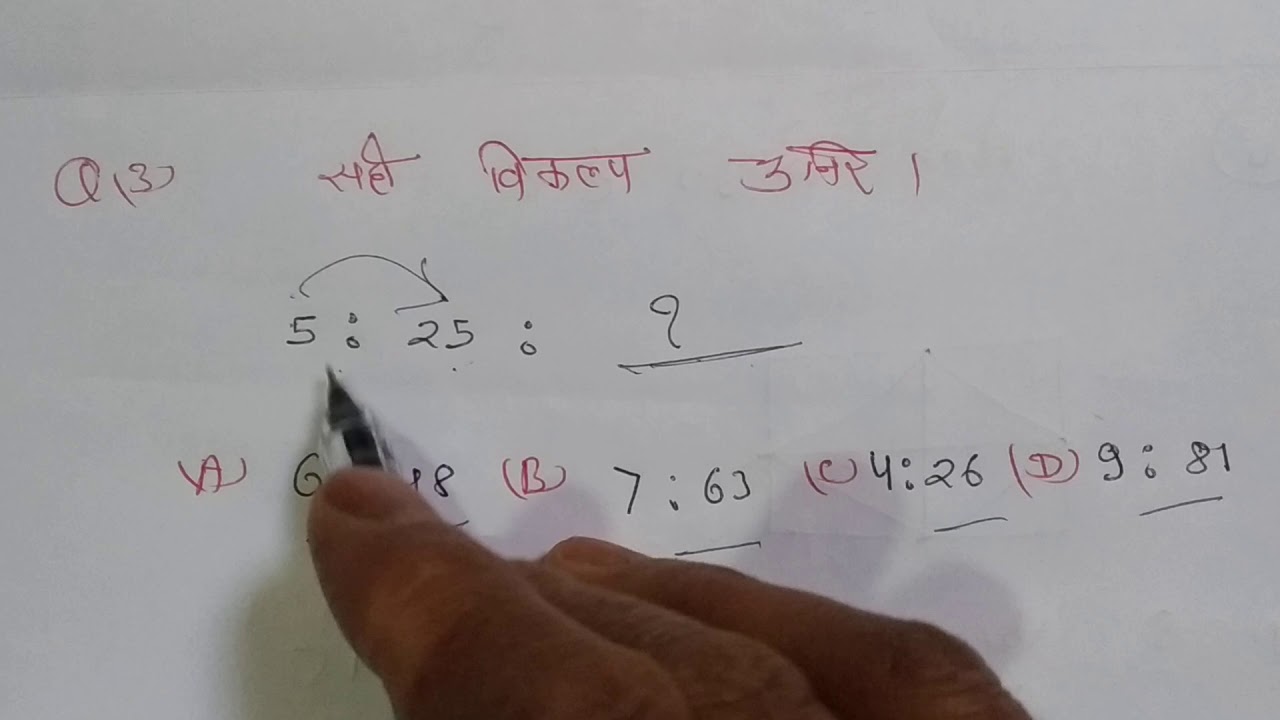 Q(3) सही विकल्प चुनिए।
5 : 25 : ?
(A) 6 (B) 7 : 63 (C) 4:26 (D) 9 : 81